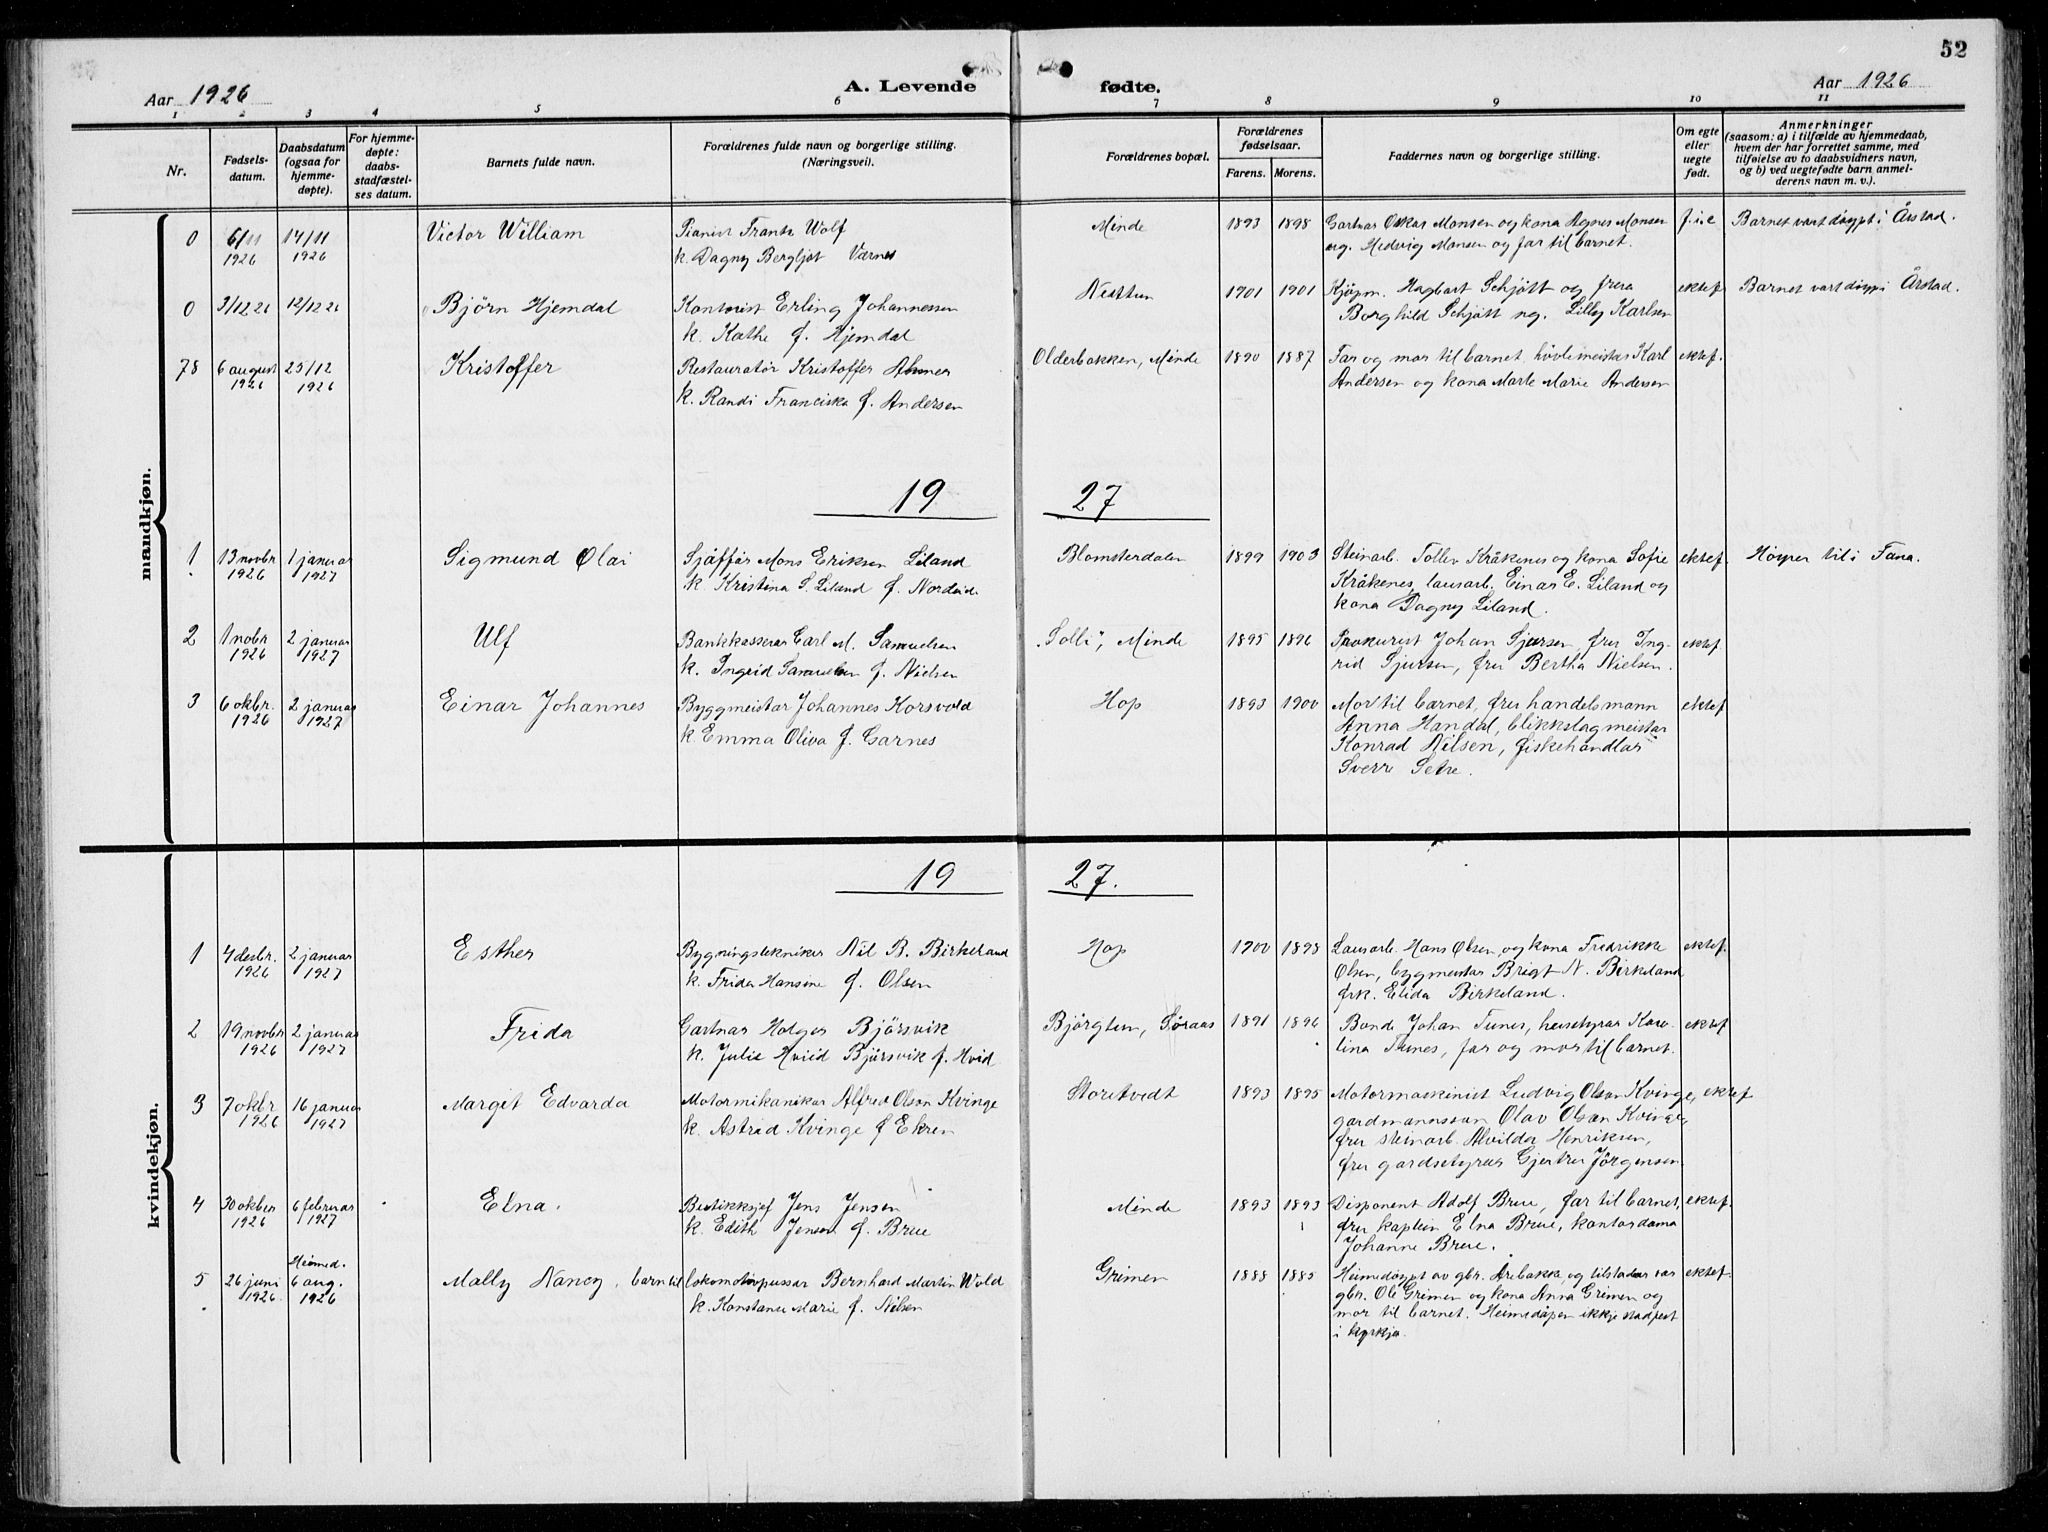 52
Aar 1926 A. Levende fødte. Aar 1926
1 2 3 4 5 6 7 8 9 10 11
Nr.
Fødsels-
datum.
Daabsdatum
(ogsaa for
hjemme-
døpte).
For hjemme-
døpte:
daabs
stadfæstel-
ses datum.
Barnets fulde navn.
Forældrenes fulde navn og borgerlige stilling.
(Næringsvei).
Forældrenes bopæl.
Forældrenes
fødselsaar.
Farens. Morens.
Faddernes navn og borgerlige stilling.
Om egte
eller
uegte
født.
Anmerkninger
(saasom: a) i tilfælde av hjemmedaab,
hvem der har forrettet samme, med
tilføielse av to daabsvidners navn,
og b) ved uegtefødte barn anmel-
derens navn m. v.).
mandkjøn.
0 6/11 1926 14/11 1926 Victor William
Pianist Frantz Wolf
k. Dagny Bergljot Værnes
Minde 1893 1898
Gartnar Oskar Monsen og kona Agnes Monsen
ug. Hedvig Monsen og far til barnet.
f. i. e Barnet vart döypt i Årstad.
0 3/12 26 12/12 26 Björn Hjemdal
Kontorist Erling Johannessen
k. Kathe f. Hjemdal
Nesttun 1901 1901
Kjöpm. Hagbart Schjött og frua
Borghild Schjött ug. Lilly Karlsen
ektef Barnet vart döypt i Årstad.
78 6 august 1926 25/12 1926 Kristoffer
Restauratør Kristoffer
k. Randi Franciska f. Andersen
Olderbakken, Minde 1890 1887
Far og mor til barnet hövlemeister Karl
Andersen og kona Marte Marie Andersen
ektef.
19 27
1 13 novbr 1926 1 januar 1927 Sigmund Olai
Sjåffør Mons Eriksen Liland
k. Kristina S. Liland f. Nordeide
Blomsterdalen 1899 1903
Steinarb. Tollev Kråkenes og kona Sofie
Kråkenes, lausarb. Einar E. Liland og
kona Dagny Liland.
ektef. Höyrer til i Fana.
2 1 nobr 1926 2 januar 1927 Ulf
Bankkasserar Carl M. Samuelsen
k. Ingrid Samuelsen f. Nielsen
"Solli", Minde 1895 1896
Prokurist Johan Sjursen, fru Ing-
rid Sjursen, fru Bertha Nielsen.
ektef
3 6 okbr. 1926 2 januar 1927 Einar Johannes
Byggmeistar Johannes Korsvold
k. Emma Oliva f. Garnes
Hop 1893 1900
Mor til barnet, fru handelsmann
Anna Handal, blikkslagmeistar
Konrad Nilsen, fiskehandlar
Sverre Setre.
ektef
kvindekjøn.
19 27.
1 4 desbr. 1926 2 januar 1927 Esther
Bygningstekniker Nil B. Birkeland
k. Frida Hansine f. Olsen
Hop 1900 1898
Lausarb. Hans Olsen, og kona Fredrikke
Olsen, bygmeistar Brigt N. Birkeland
frk. Elida Birkeland.
ektef.
2 19 novbr 1926 2 januar 1927 Frida
Gartnar Holger Björsvik
k. Julie Hviid Björsvik f. Hvid
Björgtun, Söraas 1891 1896
Bonde Johan Tunes, husstyrar Karo-
lina Tunes, far og mor til barnet.
ektef
3 7 okbr 1926 16 januar 1927 Margit Edvarda
Motormikanikar Alfred Olson Kvinge
k. Astrid Kvinge f Ekren
Storetvedt 1893 1895
Motormaskinist Ludvig Olson Kvinge,
gardmannsson Olav Olson Kvinge,
fru steinarb. Alvilda Henriksen,
fru gardsstyrar Gjertru Jörgensen
ektef
4 30 okber 1926 6 februar 1927 Elna.
Bestikksjef Jens Jensen
k. Edith Jensen f. Brue
Minde 1893 1893
Disponent Adolf Brue, far til barnet,
fru kaptein Elna Brue, kontordama
Johanne Brue.
ektef.
5 26 juni 1926 Heimed. 6 aug. 1926 Mally Nancy, barn til
lokomotivpussar Bernhard Martin Wold
k. Konstanse Marie f. Nilsen
Grimen 1888 1885
Heimedöypt av gbr. Arebakke, og tilstadar var
gbr. Ole Grimen og kona Anna Grimen og
mor til barnet. Heimedåpen ikkje stadfest
i kyrkja.
ektef.